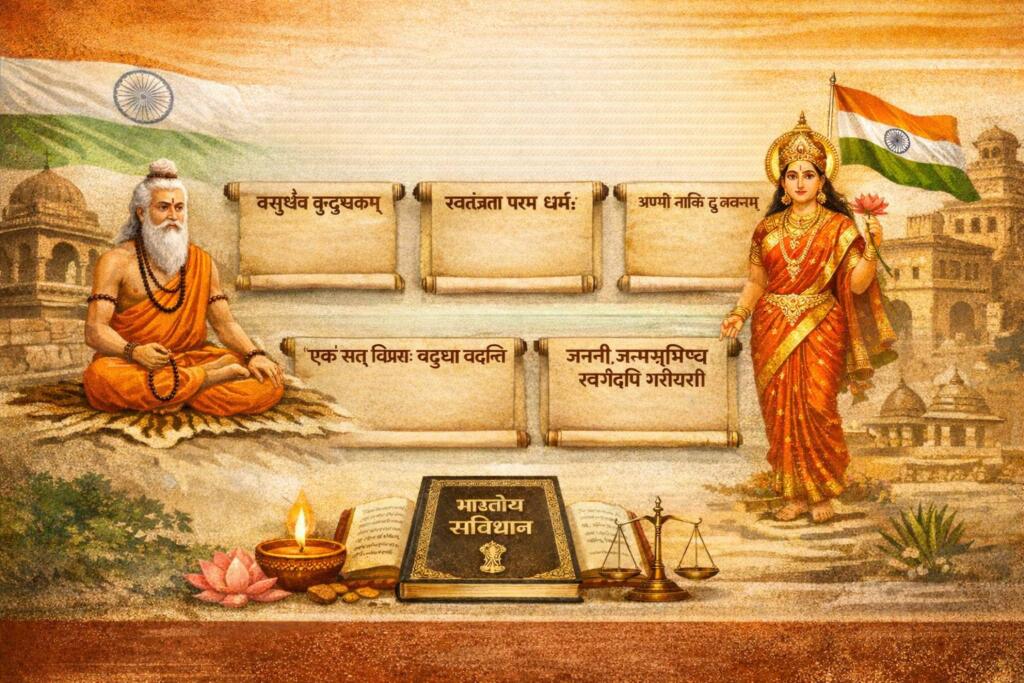 वसुर्धेव वुन्दुम्बकम्
रवतंत्रता परम धर्म:
अण्मी नाकि दु नवनम्
"एक' सत् विप्रसः वदुधा वदन्ति
जननी.जत्मसुमिष्च
रवर्गदपि गरीयसी
भारतोय
सविधान